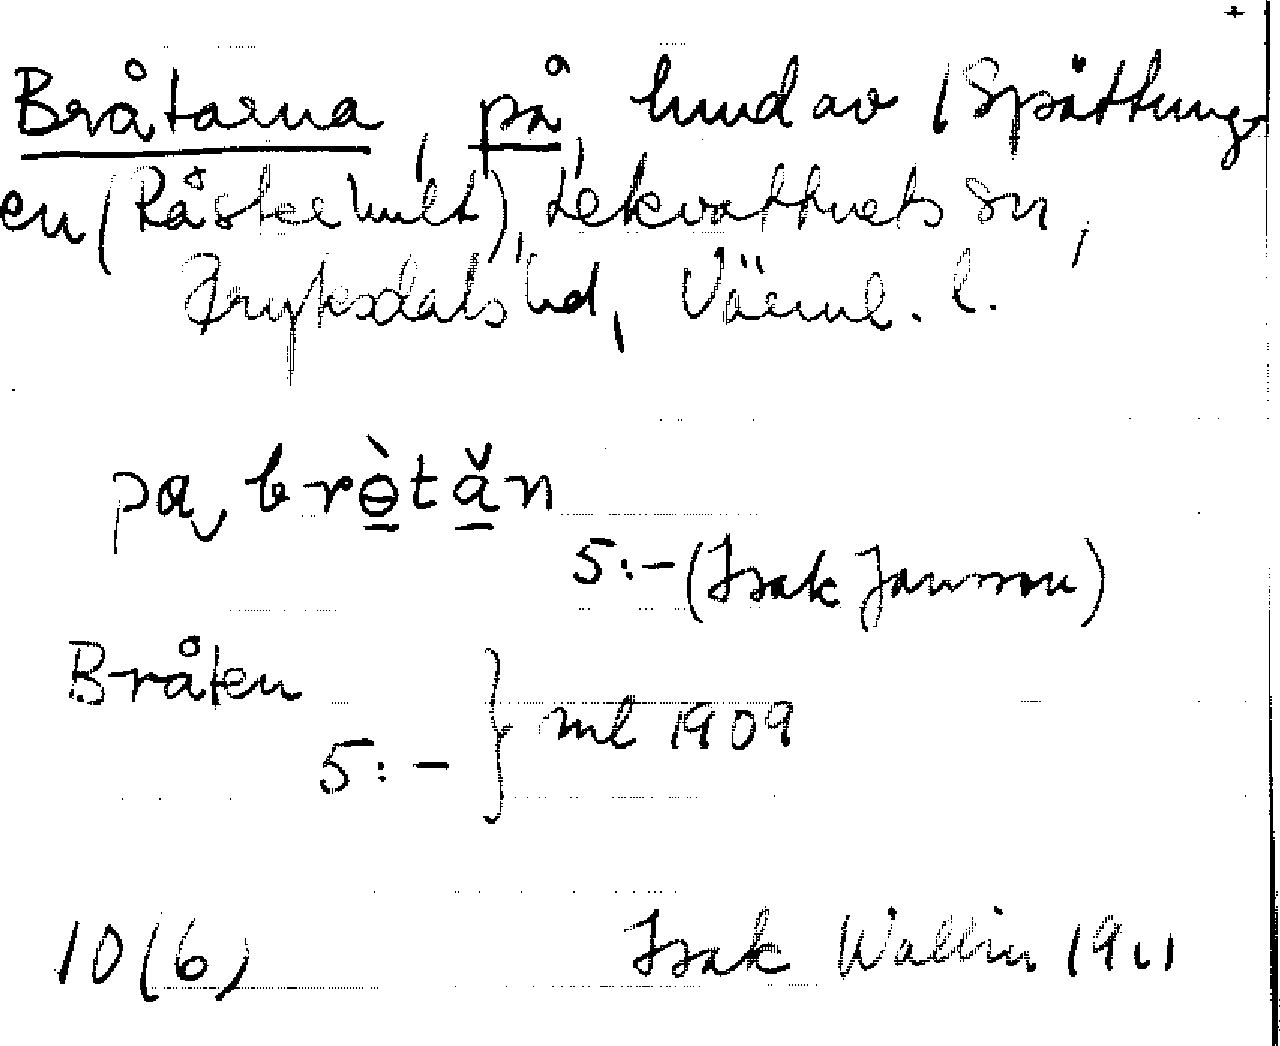 +
Bråtarna, på, hmd av 1 Spättung-
en (Råskehult), Lekvattnets sn,
Fryksdals hd, Värml. l.
pa‿brètăn
5:- (Isak Jansson)
Bråten
5:- } ml 1909
10(6) Isak Wallin 1911